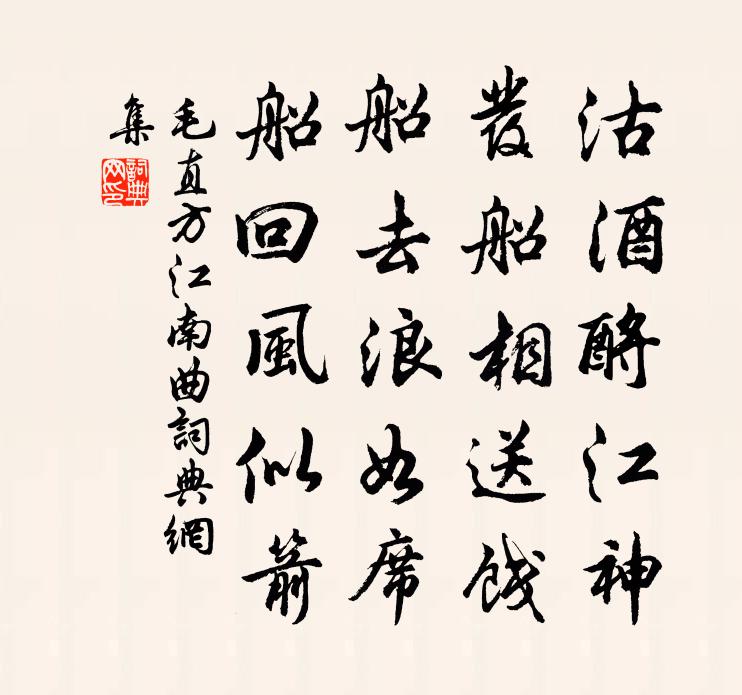 沽酒酹江神
發船相送餞
船去浪如席
船回風似箭
毛直方江南曲詞典網
集
詞典網印